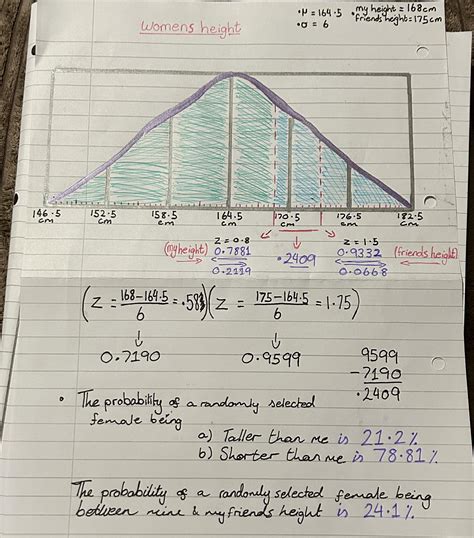 Womens height
• μ = 164.5 • my height = 168cm
• σ = 6 friends height = 175cm
146.5 cm 152.5 cm 158.5 cm 164.5 cm 170.5 cm 176.5 cm 182.5 cm
z = 0.8 z = 1.5
(my height) 0.7881 .2409 0.9332 (friends height)
0.2119 0.0668
(z = 168-164.5 / 6 = .583) (z = 175-164.5 / 6 = 1.75)
0.7190 0.9599
9599
-7190
.2409
• The probability of a randomly selected
female being
a) Taller than me is 21.2%
b) Shorter than me is 78.81%
The probability of a randomly selected female being
between mine & my friends height is 24.1%